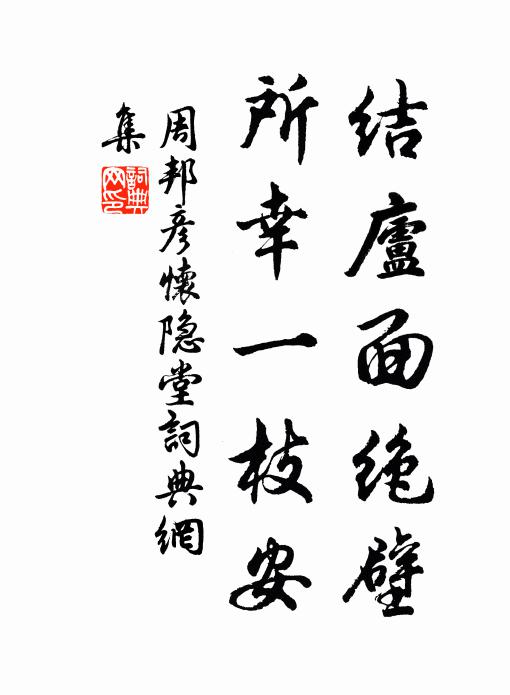 结廬面绝壁
所幸一枝安
周邦彦懷隐堂詞典網
集
詞典网印